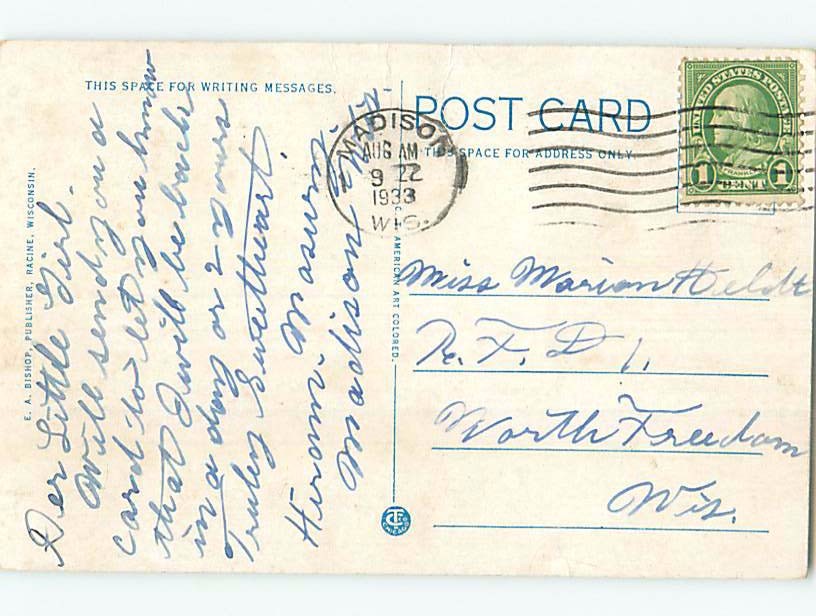 THIS SPACE FOR WRITING MESSAGES.
Der Little Girl.
Will send you a
card to let you know
that I will be back
in a day or 2 yours
Truley Sweetheart.
Hiram. Masurm.
Madison Wis.
E. A. BISHOP, PUBLISHER, RACINE, WISCONSIN.
AMERICAN ART COLORED.
POST CARD
THIS SPACE FOR ADDRESS ONLY.
MADISON
AUG AM
9 22
1933
WIS.
UNITED STATES POSTAGE
FRANKLIN
1 CENT 1
Miss Marion Heldt
R. F. D 1.
North Freedom
Wis.
CHICAGO